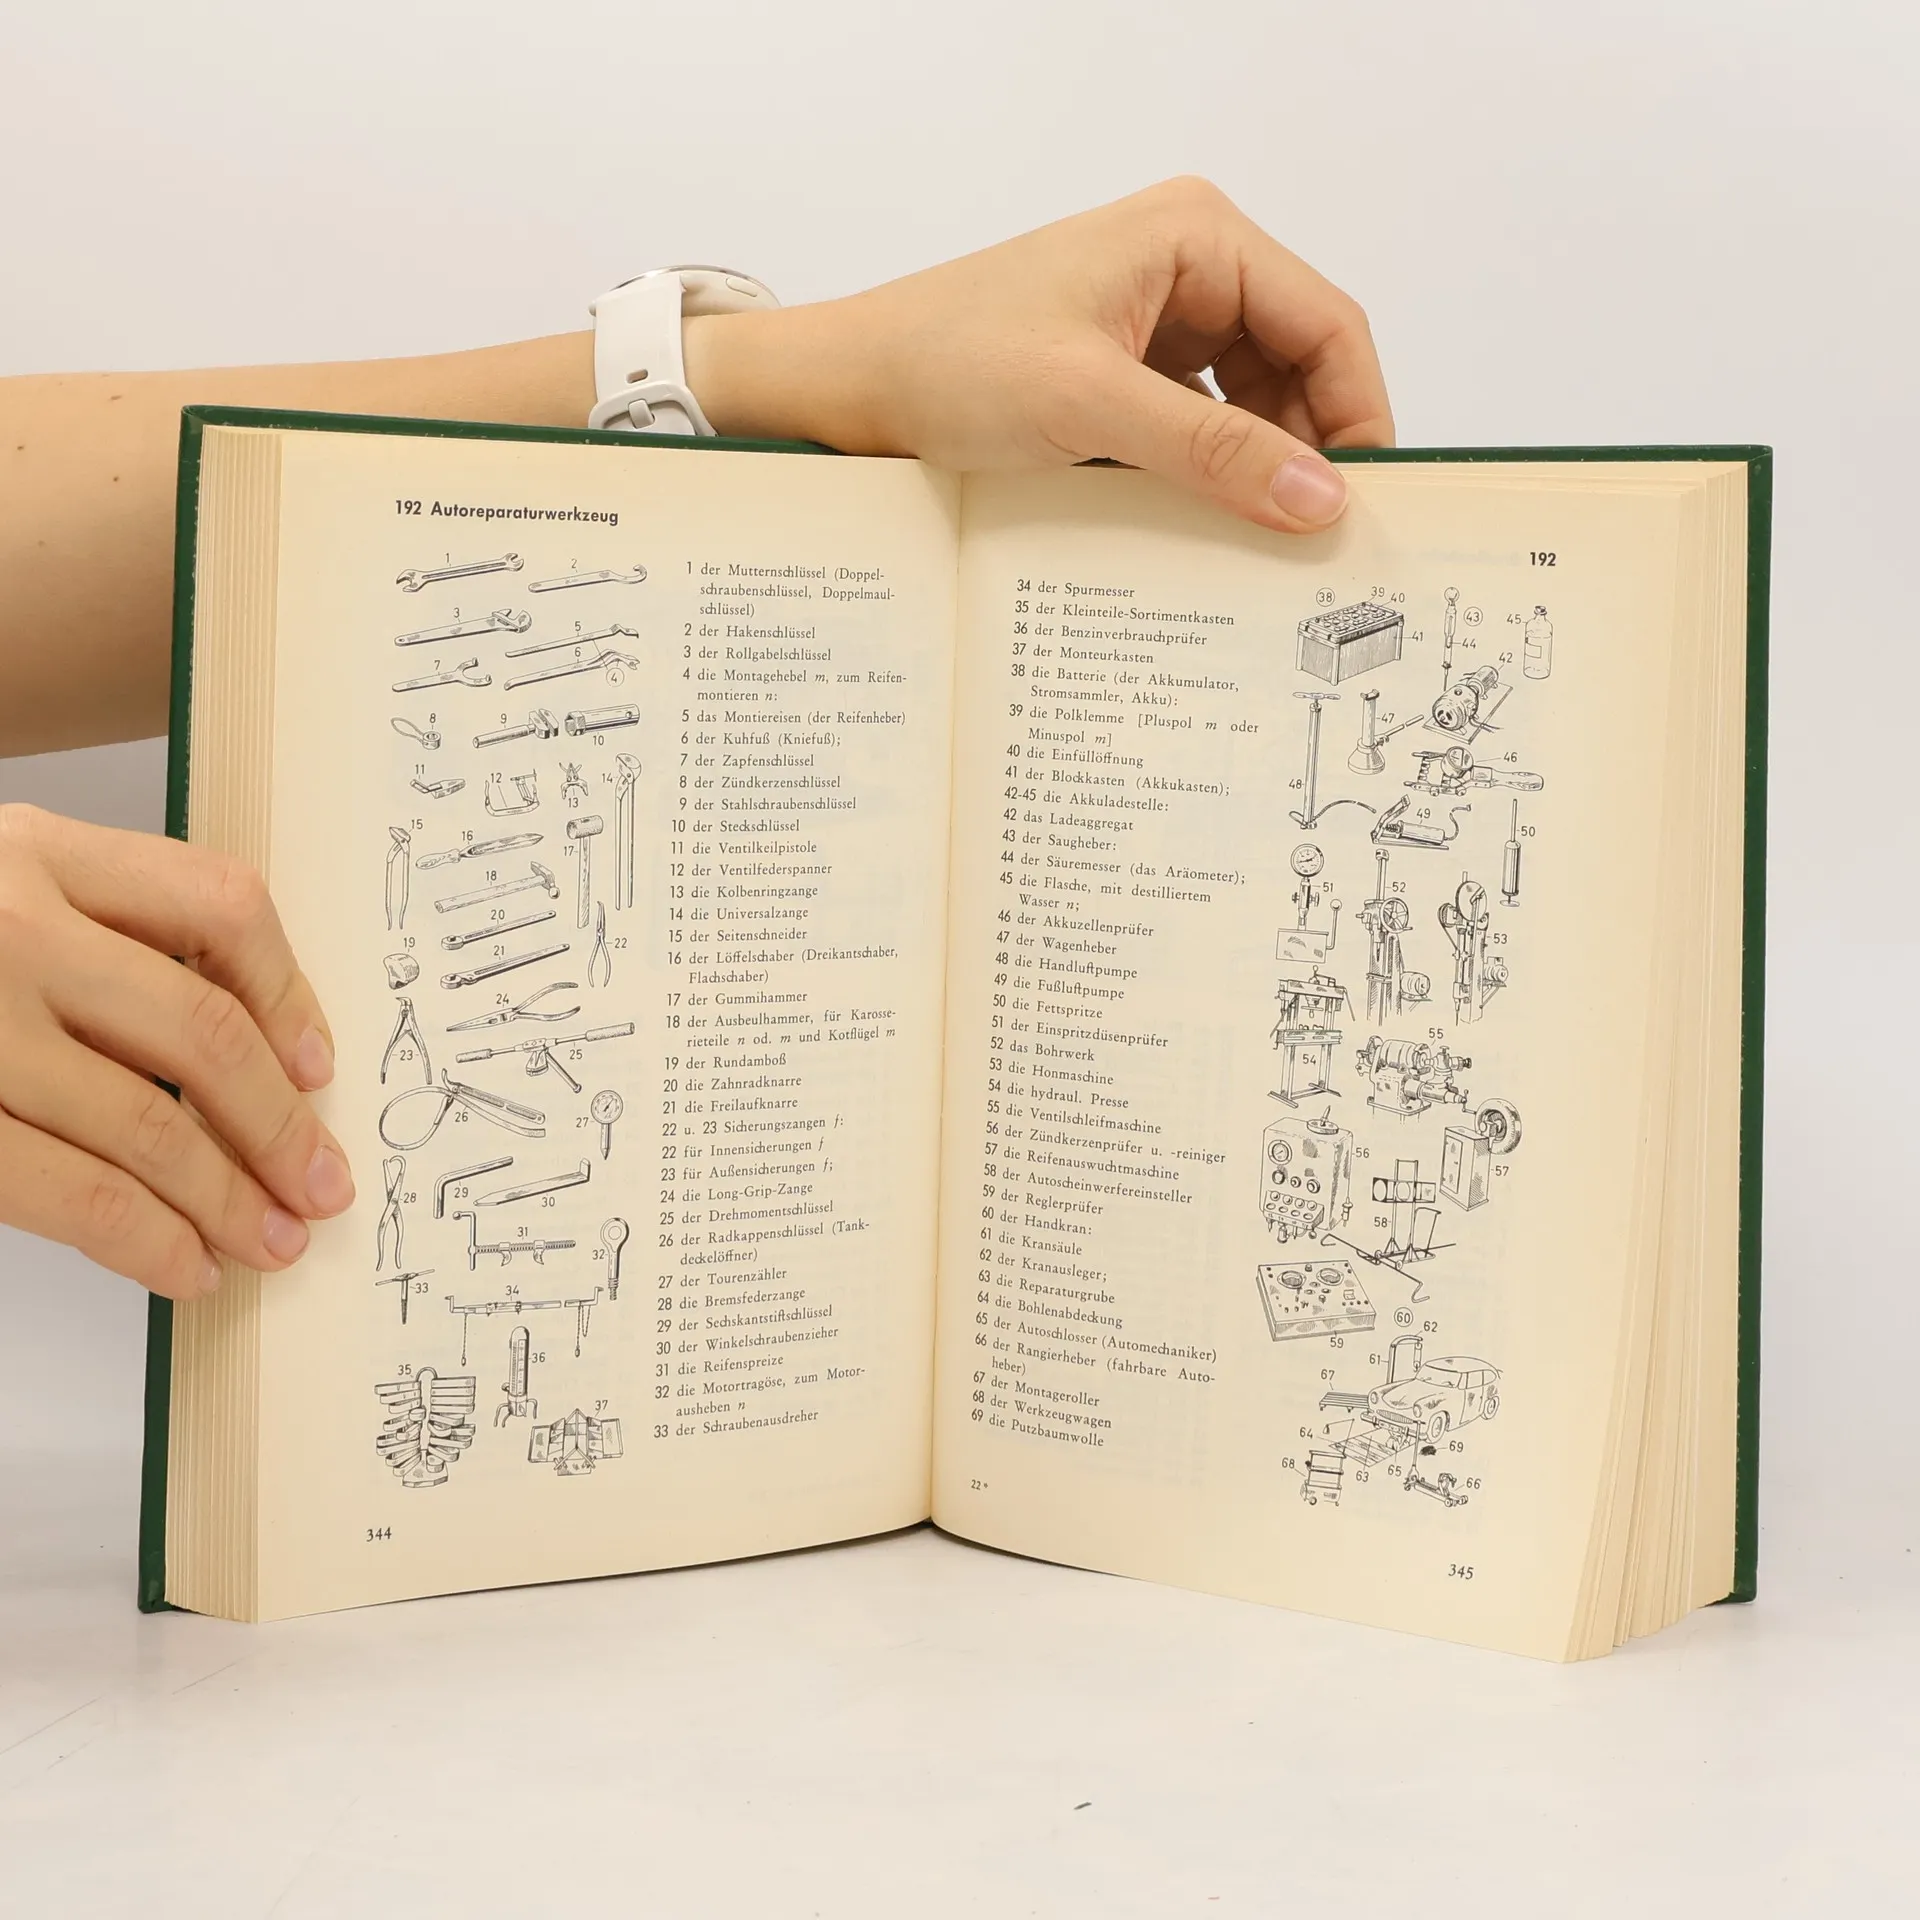 192 Autoreparaturwerkzeug
1 der Mutternschlüssel (Doppel-
schraubenschlüssel, Doppelmaul-
schlüssel)
2 der Hakenschlüssel
3 der Rollgabelschlüssel
4 die Montagehebel m, zum Reifen-
montieren n:
5 das Montiereisen (der Reifenheber)
6 der Kuhfuß (Kniefuß);
7 der Zapfenschlüssel
8 der Zündkerzenschlüssel
9 der Stahlschraubenschlüssel
10 der Steckschlüssel
11 die Ventilkeilpistole
12 der Ventilfederspanner
13 die Kolbenringzange
14 die Universalzange
15 der Seitenschneider
16 der Löffelschaber (Dreikantschaber,
Flachschaber)
17 der Gummihammer
18 der Ausbeulhammer, für Karosse-
rieteile n od. m und Kotflügel m
19 der Rundamboß
20 die Zahnradknarre
21 die Freilaufknarre
22 u. 23 Sicherungszangen f:
22 für Innensicherungen f
23 für Außensicherungen f;
24 die Long-Grip-Zange
25 der Drehmomentschlüssel
26 der Radkappenschlüssel (Tank-
deckelöffner)
27 der Tourenzähler
28 die Bremsfederzange
29 der Sechskantstiftschlüssel
30 der Winkelschraubenzieher
31 die Reifenspreize
32 die Motortragöse, zum Motor-
ausheben n
33 der Schraubenausdreher
344
192
34 der Spurmesser
35 der Kleinteile-Sortimentkasten
36 der Benzinverbrauchprüfer
37 der Monteurkasten
38 die Batterie (der Akkumulator,
Stromsammler, Akku):
39 die Polklemme [Pluspol m oder
Minuspol m]
40 die Einfüllöffnung
41 der Blockkasten (Akkukasten);
42-45 die Akkuladestelle:
42 das Ladeaggregat
43 der Saugheber:
44 der Säuremesser (das Aräometer);
45 die Flasche, mit destilliertem
Wasser n;
46 der Akkuzellenprüfer
47 der Wagenheber
48 die Handluftpumpe
49 die Fußluftpumpe
50 die Fettspritze
51 der Einspritzdüsenprüfer
52 das Bohrwerk
53 die Honmaschine
54 die hydraul. Presse
55 die Ventilschleifmaschine
56 der Zündkerzenprüfer u. -reiniger
57 die Reifenauswuchtmaschine
58 der Autoscheinwerfereinsteller
59 der Reglerprüfer
60 der Handkran:
61 die Kransäule
62 der Kranausleger;
63 die Reparaturgrube
64 die Bohlenabdeckung
65 der Autoschlosser (Automechaniker)
66 der Rangierheber (fahrbare Auto-
heber)
67 der Montageroller
68 der Werkzeugwagen
69 die Putzbaumwolle
22*
345